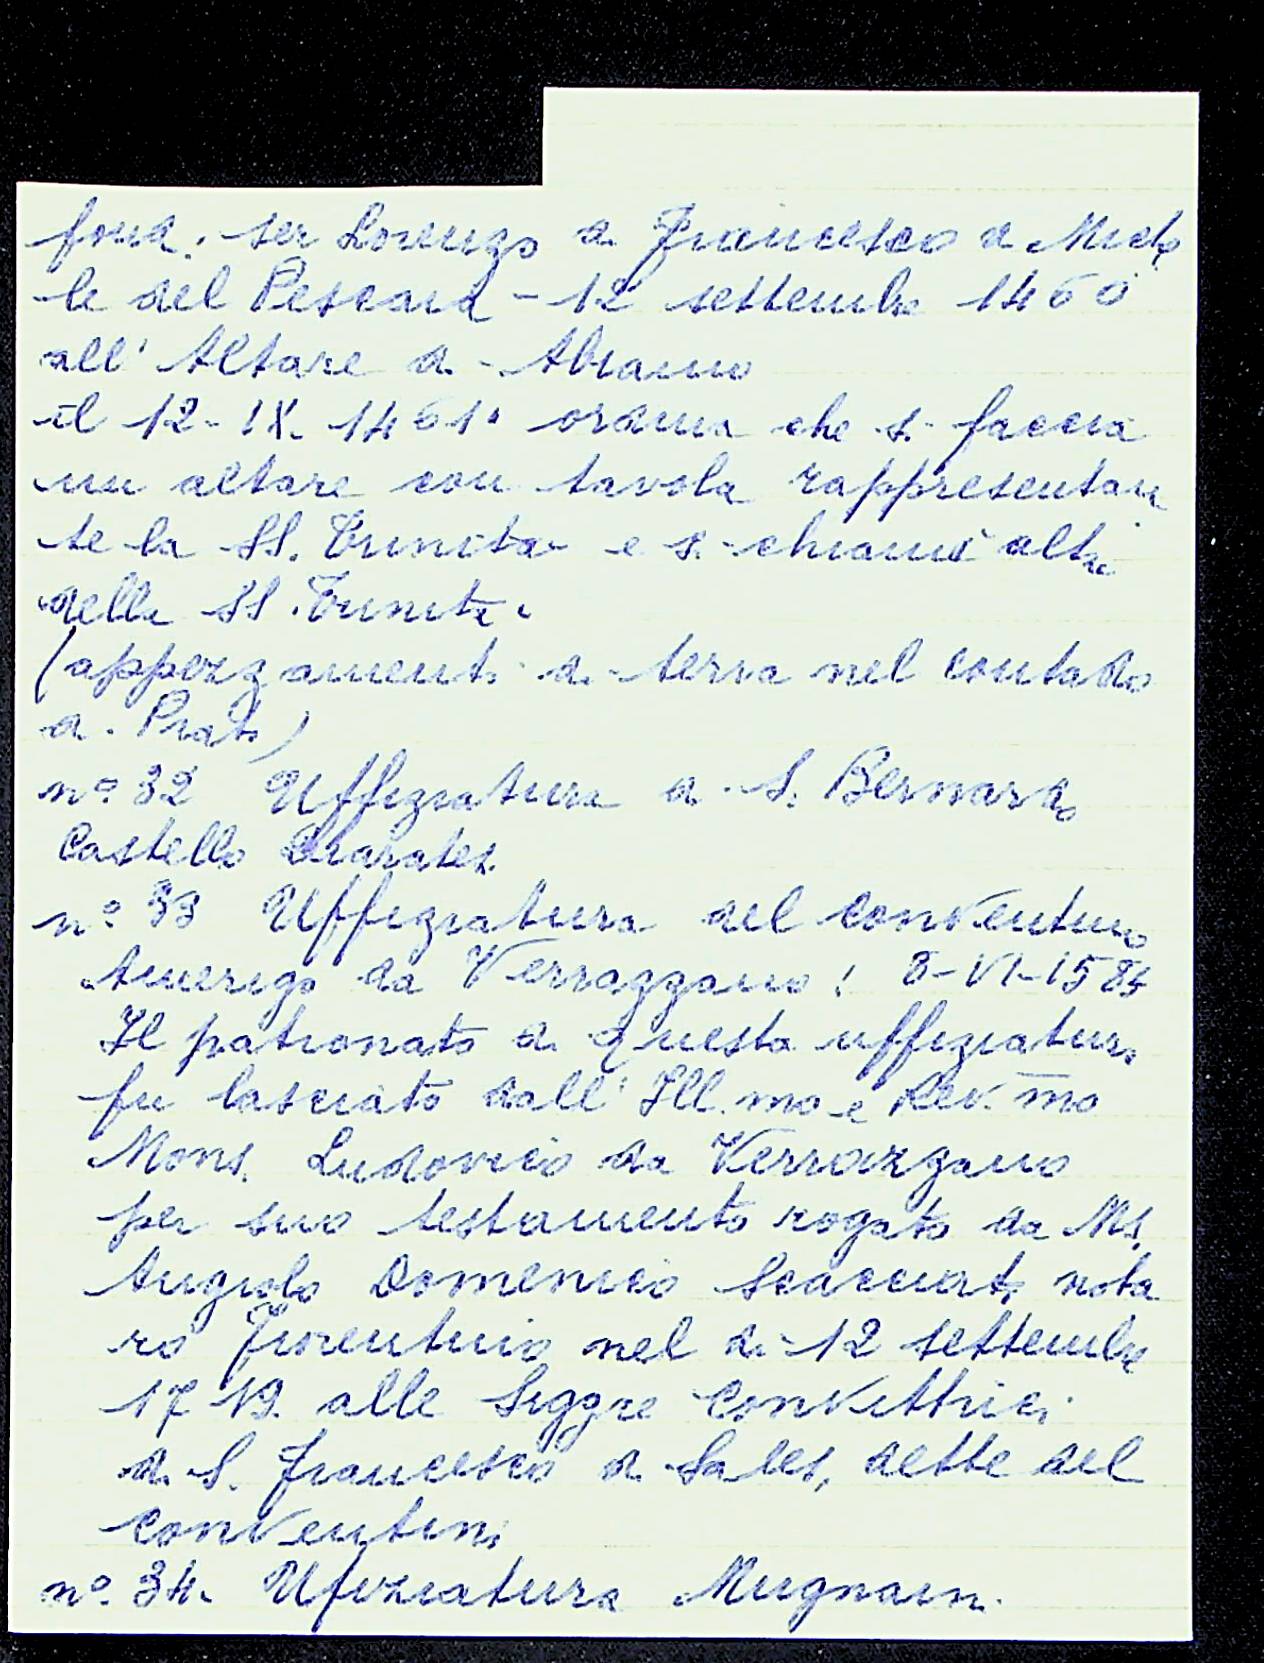 fond. ser Lorenzo di Francesco di Miche
le del Pescaia - 12 settembre 1460
all' Altare di Abramo
il 12-IX. 1461. ordina che si faccia
un altare con tavola rappresentan
te la SS. Trinità e si chiami altre
della SS. Trinità.
(appezzamenti di terra nel contado
di Prato)
n.° 32 Uffiziatura di S. Bernardo
Castello
n.° 33 Uffiziatura del conventino
Amerigo da Verrazzano! 8-VI-1584
Il patronato di questa uffiziatura
fu lasciato dall' Ill.mo e Rev.mo
Mons. Ludovico da Verrazzano
per suo testamento rogato da Ms.
Angiolo Domenico Scacciati nota
ro fiorentino nel dì 12 settembre
1719. alle Siggre Convittrici
di S. Francesco di Sales, dette del
conventino
n.° 34. Ufiziatura Mugnaini